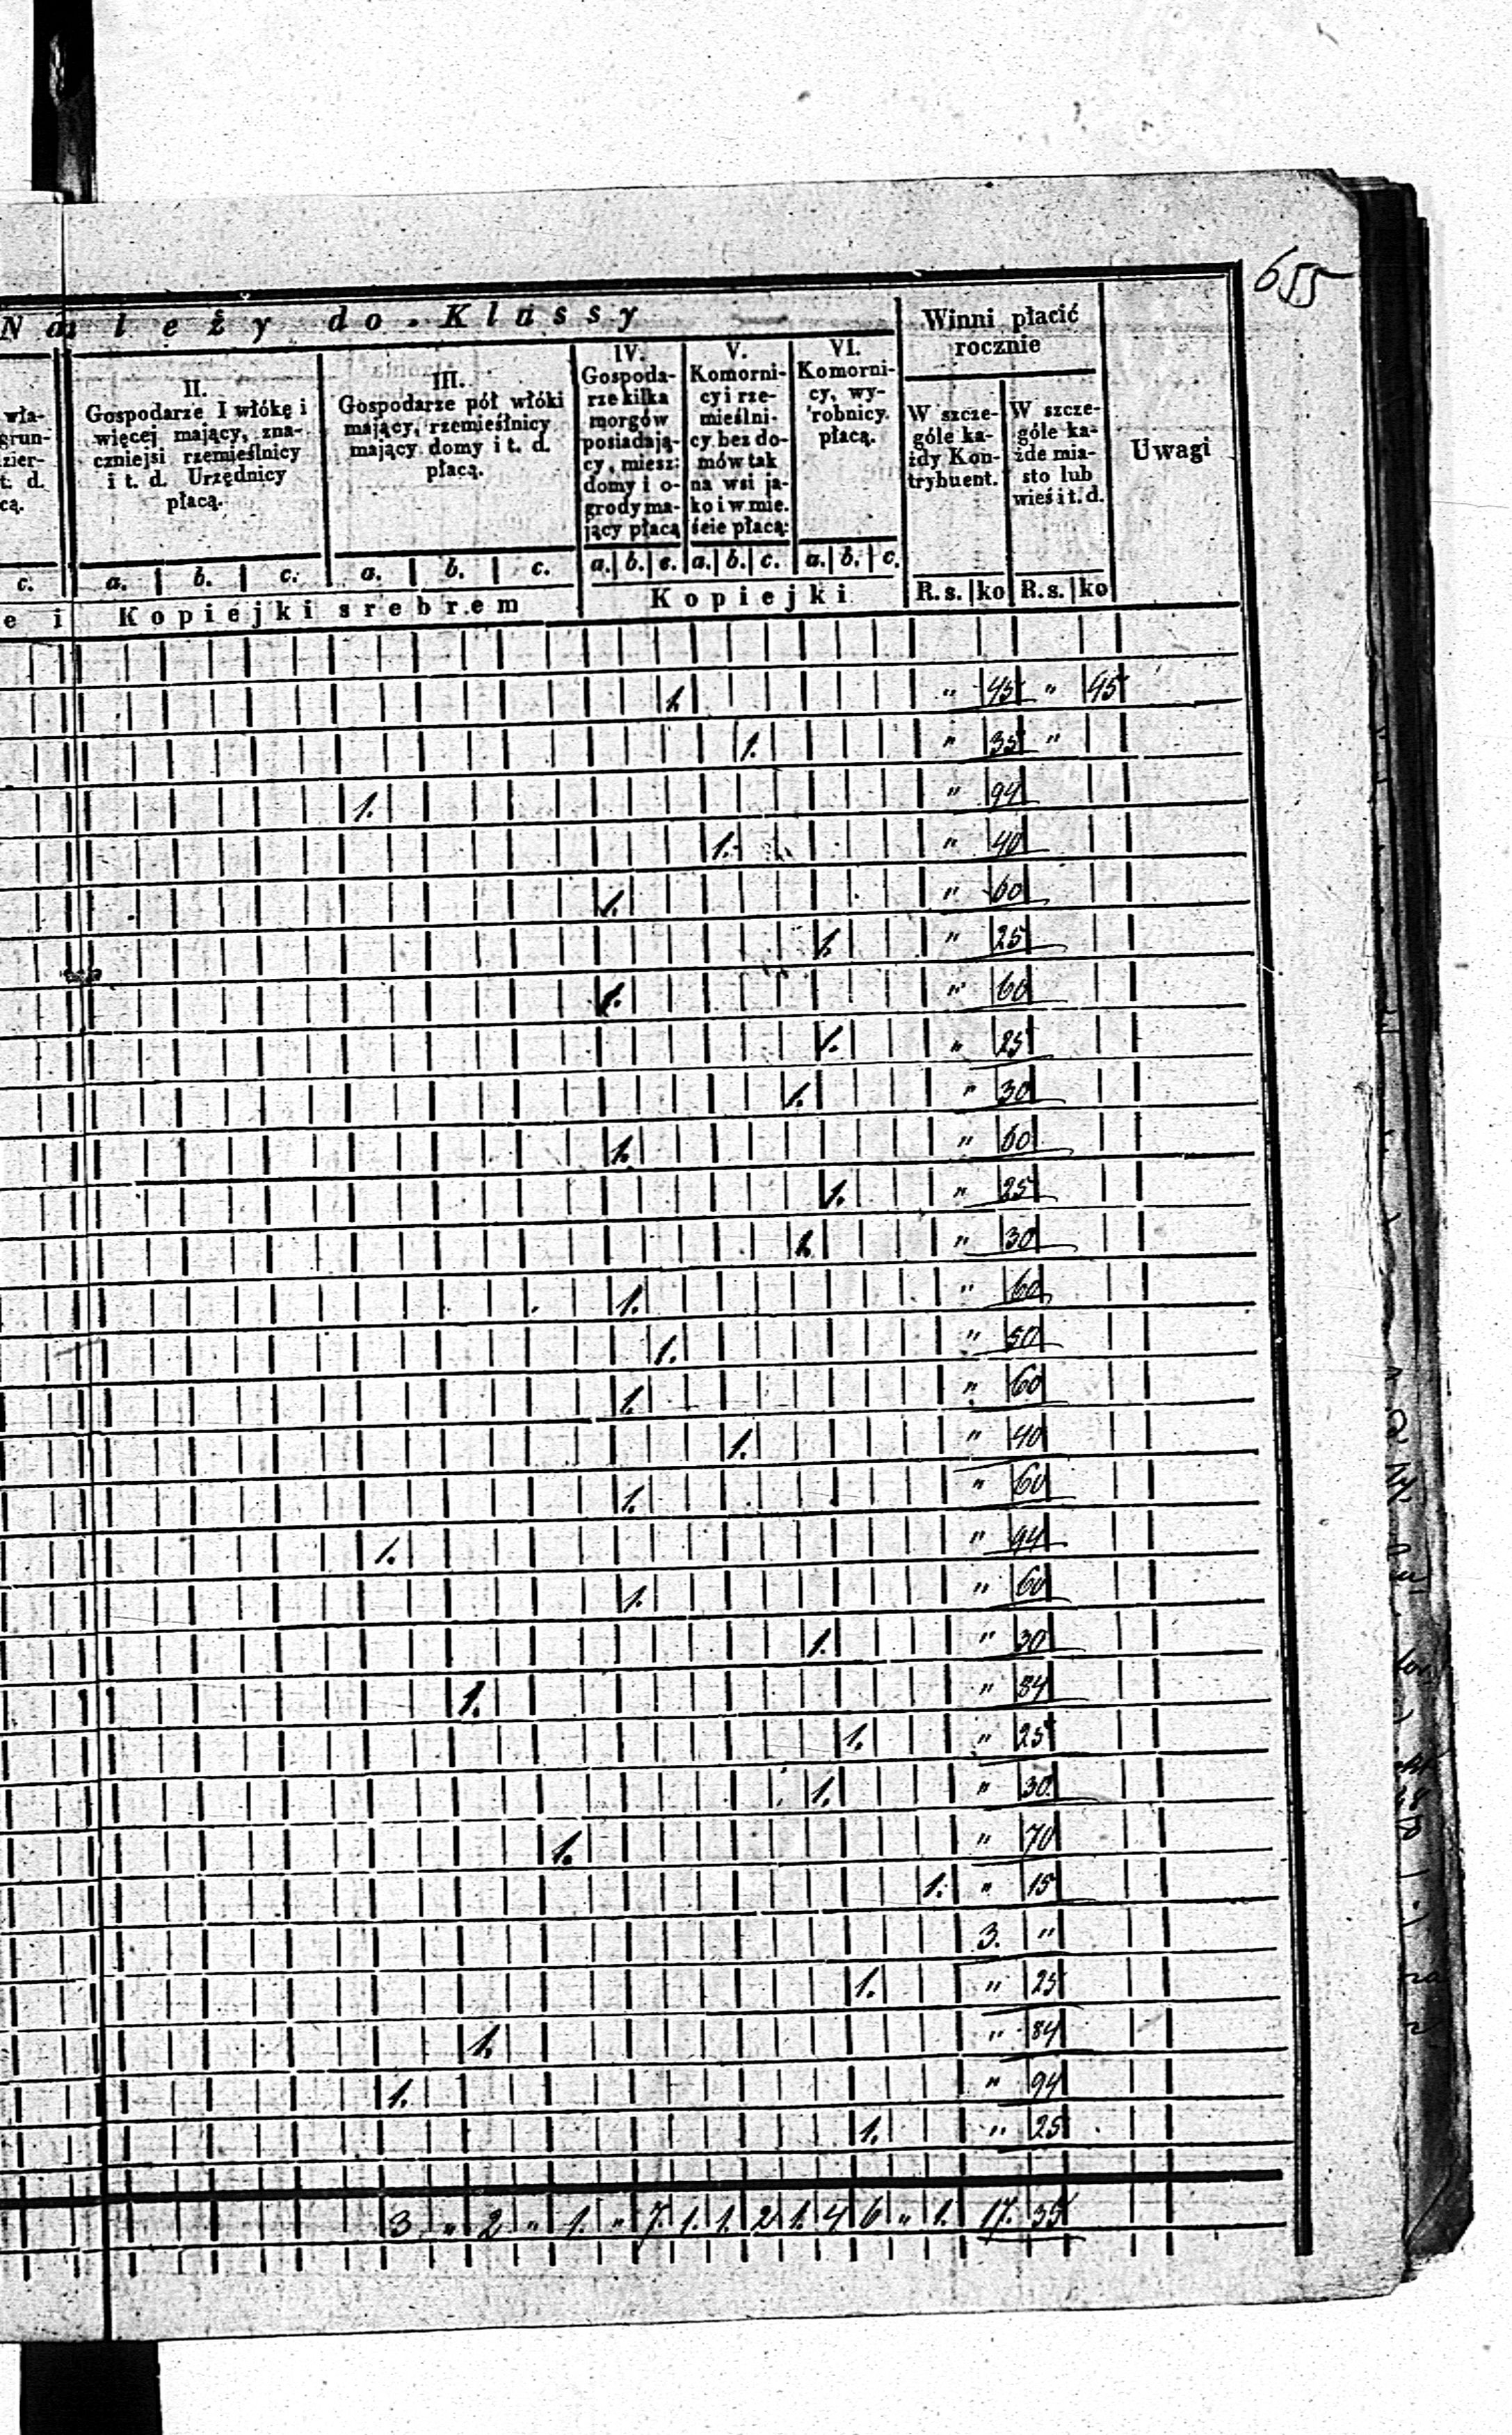 655
Należy do Klassy
Winni płacić rocznie
Uwagi
wła-
grun-
zier-
t. d.
cą.
II.
Gospodarze I włókę i
więcej mający, zna-
czniejsi rzemieślnicy
i t. d. Urzędnicy
płacą.
III.
Gospodarze pół włóki
mający, rzemieślnicy
mający domy i t. d.
płacą.
IV.
Gospoda-
rze kilka
morgów
posiadają-
cy, miesz:
domy i o-
grody ma-
jący płacą
V.
Komorni-
cy i rze-
mieślni-
cy bez do-
mów tak
na wsi ja-
ko i w mie.
ście płacą:
VI.
Komorni-
cy, wy-
robnicy.
płacą.
W szcze-
góle ka-
żdy Kon-
trybuent.
W szcze-
góle ka-
żde mia-
sto lub
wieś i t. d.
c. a. b. c. a. b. c. a. b. c. a. b. c. a. b. c.
e i Kopiejki srebrem Kopiejki R. s. ko R. s. ko
1. " 45 " 45
1. " 35 "
1. " 94
1. " 40
1. " 60
1. " 25
1. " 60
1. " 25
1. " 30
1. " 60
1. " 25
1. " 30
1. " 60
1. " 50
1. " 60
1. " 40
1. " 60
1. " 94
1. " 60
1. " 30
1. " 84
1. " 25
1. " 30
1. " 70
1. " 15
3. "
1. " 25
1. " 84
1. " 94
1. " 25
3 " 2 " 1. " 7. 1. 1. 2 1. 4 6 " 1. 17. 35